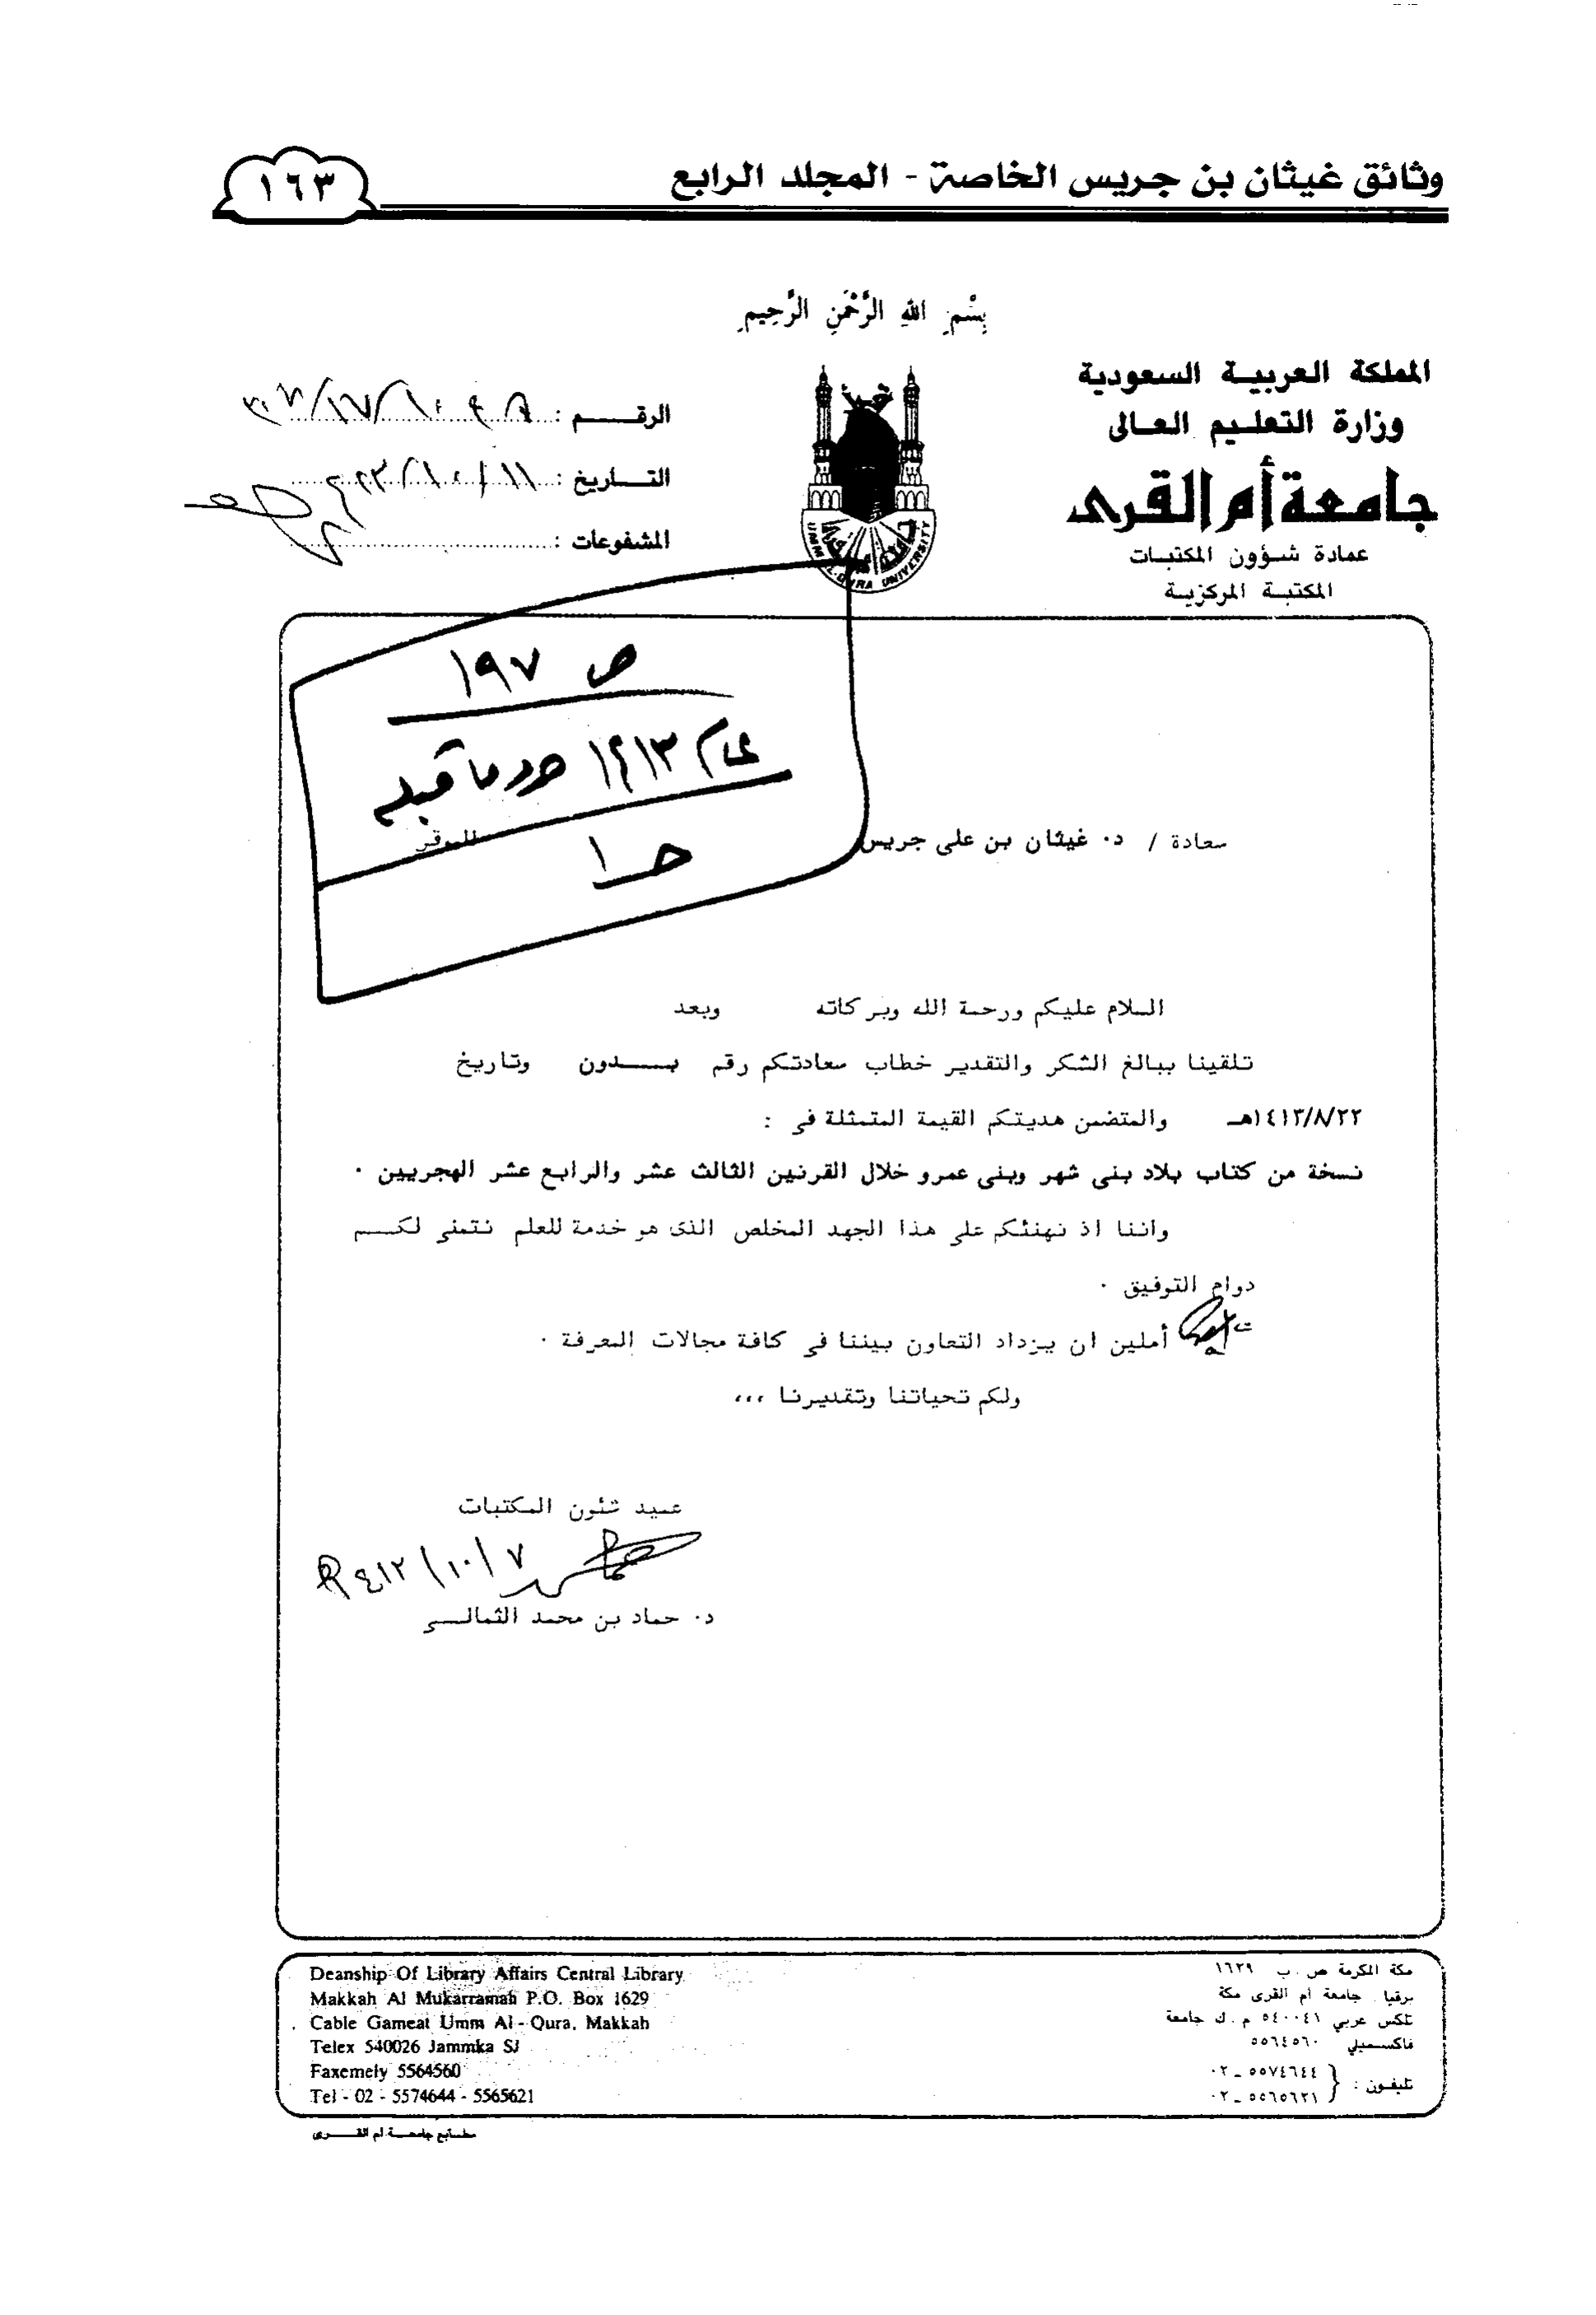 وثائق غيثان بن جريس الخاصة - المجلد الرابع
١٦٣
بِسْمِ اللهِ الرَّحْمَنِ الرَّحِيمِ
المملكة العربية السعودية
وزارة التعليم العالى
جامعة أم القرى
عمادة شؤون المكتبات
المكتبة المركزية
الرقم :
التاريخ :
المشفوعات :
UMM AL-QURA UNIVERSITY
ص ١٩٧
عام ١٤١٣ وما قبله
حـ ١
سعادة / د٠ غيثان بن على جريس الموقر
السلام عليكم ورحمة الله وبركاته وبعد
تلقينا ببالغ الشكر والتقدير خطاب سعادتكم رقم بـــدون وتاريخ
١٤١٣/٨/٢٢هـ والمتضمن هديتكم القيمة المتمثلة فى :
نسخة من كتاب بلاد بنى شهر وبنى عمرو خلال القرنين الثالث عشر والرابع عشر الهجريين ٠
واننا اذ نهنئكم على هذا الجهد المخلص الذى هو خدمة للعلم نتمنى لكـــم
دوام التوفيق ٠
أملين ان يزداد التعاون بيننا فى كافة مجالات المعرفة ٠
ولكم تحياتنا وتقديرنا ،،،
عميد شئون المكتبات
د٠ حماد بن محمد الثمالـــى
Deanship Of Library Affairs Central Library
Makkah Al Mukarramah P.O. Box 1629
Cable Gameat Umm Al - Qura, Makkah
Telex 540026 Jammka SJ
Faxemely 5564560
Tel - 02 - 5574644 - 5565621
مكة المكرمة ص . ب ١٦٢٩
برقيا . جامعة أم القرى مكة
تلكس عربي ٥٤٠٠٤١ م . ك جامعة
فاكسميلي ٥٥٦٤٥٦٠
تليفون : ٥٥٧٤٦٤٤ ـ ٠٢
٥٥٦٥٦٢١ ـ ٠٢
مطابع جامعة أم القرى